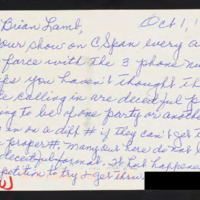 Brian Lamb, Oct 1, 1
our show on C Span every a
farce with the 3 phone nu
ps you haven't thought th
e calling in are deceitful p
ng to be of one party or anoth
in on a diff # if they can't get t
proper #. Many our here do not l
deceitful format. It has happene
petition to try + get thru